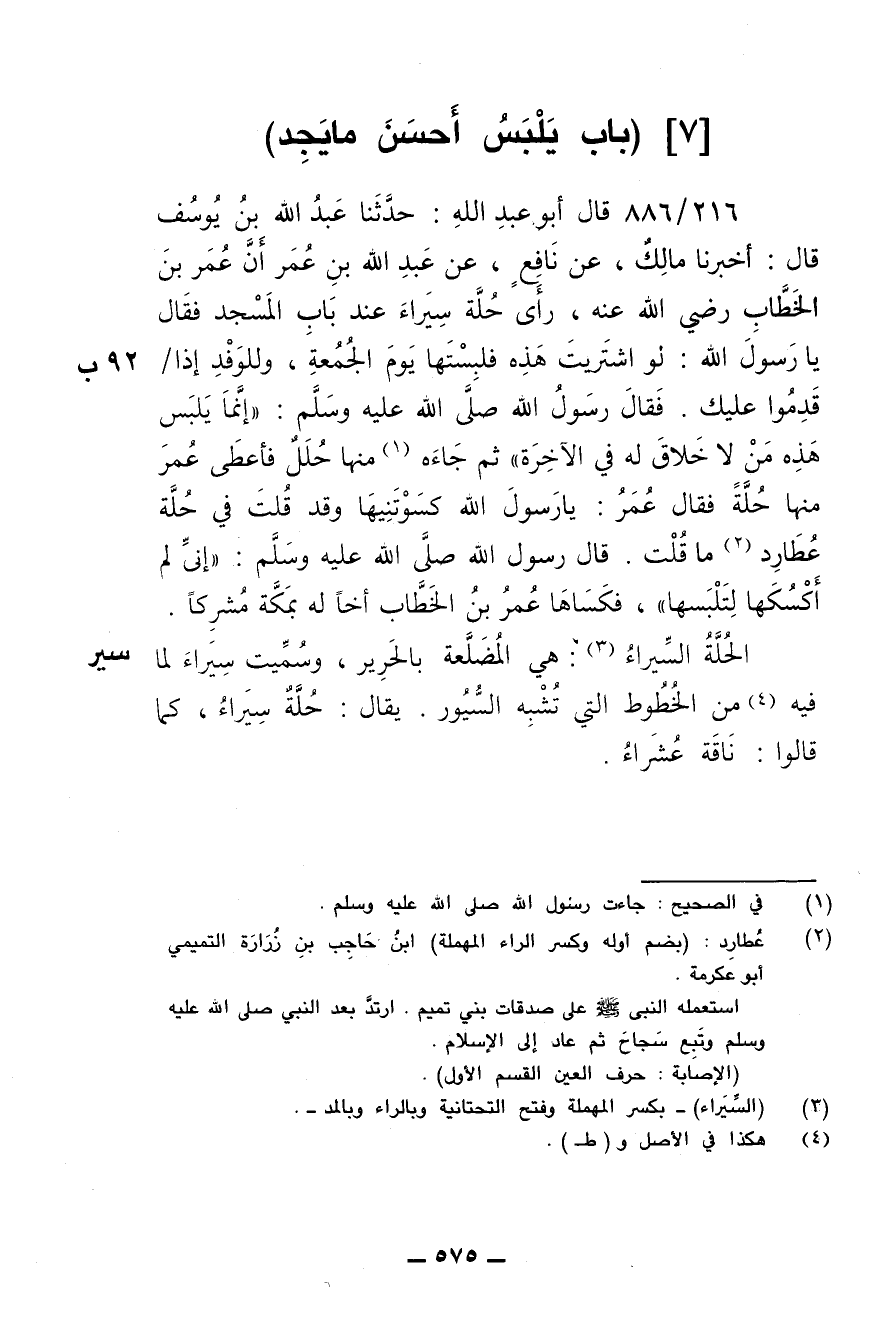 [٧] (باب يَلْبَسُ أَحسَنَ مايَجِد)
٨٨٦/٢١٦ قال أبو عبدِ اللهِ : حدَّثَنا عَبدُ الله بنُ يُوسُف
قال : أخبرنا مالِكٌ ، عن نَافِعٍ ، عن عَبدِ الله بنِ عُمَر أَنَّ عُمَر بنَ
الخَطَّابِ رضي الله عنه ، رأَى حُلَّة سِيَراءَ عند بَابِ المَسْجد فقَال
يا رَسولَ الله : لو اشتَريتَ هَذِه فلبِسْتَها يَومَ الجُمُعةِ ، وللوَفْدِ إذا/ ٩٢ ب
قَدِمُوا عليك . فَقالَ رسَولُ الله صلَّى الله عليه وسَلَّم : «إنَّماَ يَلبَس
هَذِه مَنْ لا خَلاقَ له في الآخِرَة» ثم جَاءَه (١) منها حُلَلٌ فأعطَى عُمرَ
منها حُلَّةً فقال عُمَرُ : يارَسولَ الله كسَوْتَنِيهَا وقد قُلتَ في حُلَّة
عُطَارِد (٢) ما قُلْت . قال رسول الله صلَّى الله عليه وسَلَّم : «إنيِّ لم
أَكْسُكَها لِتَلْبَسها» ، فكَسَاهَا عُمرُ بنُ الخَطَّاب أخاً له بمَكَّة مُشرِكاً .
الحُلَّةُ السِّيراءُ (٣) : هي المُضَلَّعة بالحَرِير ، وسُمِّيت سِيَراءَ لما سير
فيه (٤) من الخُطُوط التي تُشْبِه السُّيُور . يقال : حُلَّةٌ سِيَراءُ ، كما
قالوا : نَاقَة عُشَراءُ .
(١) في الصحيح : جاءت رسول الله صلى الله عليه وسلم .
(٢) عُطارِد : (بضم أوله وكسر الراء المهملة) ابنُ حَاجِب بنِ زُرَارَة التميمي
أبو عكرمة .
استعمله النبى ﷺ على صدقات بني تميم . ارتدَّ بعد النبي صلى الله عليه
وسلم وتَبِع سَجاحَ ثم عاد إلى الإسلام .
(الإصابة : حرف العين القسم الأول) .
(٣) (السِّيَراء) ـ بكسر المهملة وفتح التحتانية وبالراء وبالمد ـ .
(٤) هكذا في الأصل و ( طـ ) .
ـ ٥٧٥ ـ